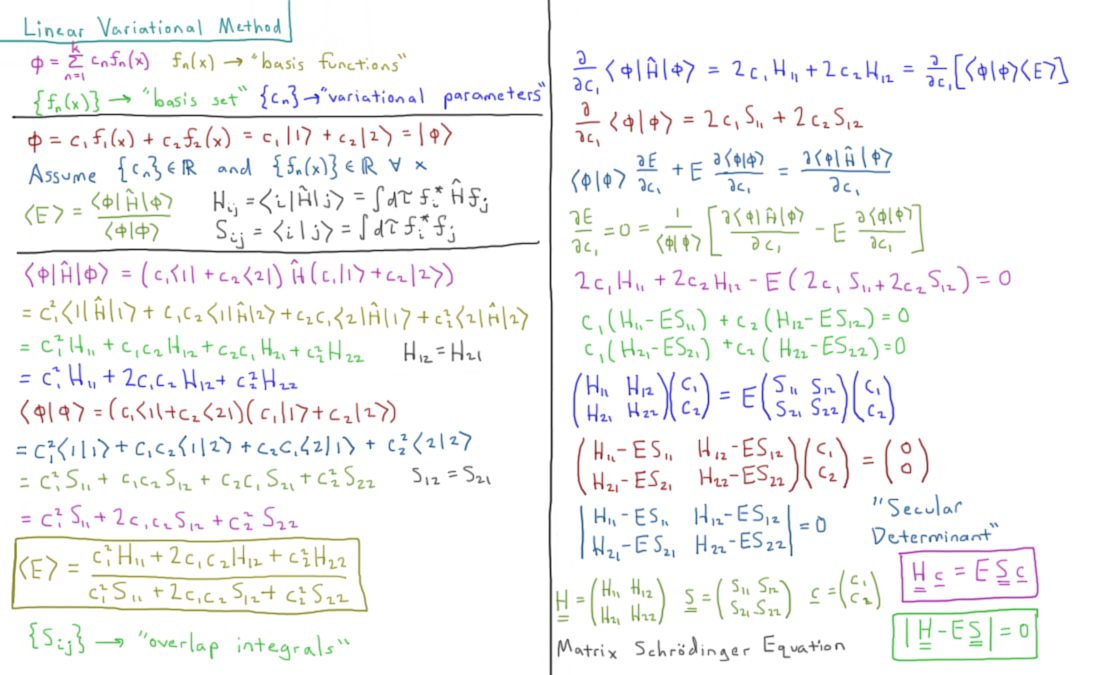 Linear Variational Method
ϕ = Σ_{n=1}^{k} c_n f_n(x)   f_n(x) → "basis functions"
{f_n(x)} → "basis set" {c_n} → "variational parameters"
ϕ = c₁f₁(x) + c₂f₂(x) = c₁|1⟩ + c₂|2⟩ = |ϕ⟩
Assume {c_n} ∈ ℝ and {f_n(x)} ∈ ℝ ∀ x
⟨E⟩ = ⟨ϕ|Ĥ|ϕ⟩ / ⟨ϕ|ϕ⟩   H_ij = ⟨i|Ĥ|j⟩ = ∫dτ f_i* Ĥ f_j
S_ij = ⟨i|j⟩ = ∫dτ f_i* f_j
⟨ϕ|Ĥ|ϕ⟩ = (c₁⟨1| + c₂⟨2|) Ĥ (c₁|1⟩ + c₂|2⟩)
= c₁²⟨1|Ĥ|1⟩ + c₁c₂⟨1|Ĥ|2⟩ + c₂c₁⟨2|Ĥ|1⟩ + c₂²⟨2|Ĥ|2⟩
= c₁²H₁₁ + c₁c₂H₁₂ + c₂c₁H₂₁ + c₂²H₂₂   H₁₂ = H₂₁
= c₁²H₁₁ + 2c₁c₂H₁₂ + c₂²H₂₂
⟨ϕ|ϕ⟩ = (c₁⟨1| + c₂⟨2|)(c₁|1⟩ + c₂|2⟩)
= c₁²⟨1|1⟩ + c₁c₂⟨1|2⟩ + c₂c₁⟨2|1⟩ + c₂²⟨2|2⟩
= c₁²S₁₁ + c₁c₂S₁₂ + c₂c₁S₂₁ + c₂²S₂₂   S₁₂ = S₂₁
= c₁²S₁₁ + 2c₁c₂S₁₂ + c₂²S₂₂
⟨E⟩ = (c₁²H₁₁ + 2c₁c₂H₁₂ + c₂²H₂₂) / (c₁²S₁₁ + 2c₁c₂S₁₂ + c₂²S₂₂)
{S_ij} → "overlap integrals"
∂/∂c₁ ⟨ϕ|Ĥ|ϕ⟩ = 2c₁H₁₁ + 2c₂H₁₂ = ∂/∂c₁ [⟨ϕ|ϕ⟩⟨E⟩]
∂/∂c₁ ⟨ϕ|ϕ⟩ = 2c₁S₁₁ + 2c₂S₁₂
⟨ϕ|ϕ⟩ ∂E/∂c₁ + E ∂⟨ϕ|ϕ⟩/∂c₁ = ∂⟨ϕ|Ĥ|ϕ⟩/∂c₁
∂E/∂c₁ = 0 = 1/⟨ϕ|ϕ⟩ [∂⟨ϕ|Ĥ|ϕ⟩/∂c₁ − E ∂⟨ϕ|ϕ⟩/∂c₁]
2c₁H₁₁ + 2c₂H₁₂ − E(2c₁S₁₁ + 2c₂S₁₂) = 0
c₁(H₁₁−ES₁₁) + c₂(H₁₂−ES₁₂) = 0
c₁(H₂₁−ES₂₁) + c₂(H₂₂−ES₂₂) = 0
(H₁₁ H₁₂; H₂₁ H₂₂)(c₁; c₂) = E(S₁₁ S₁₂; S₂₁ S₂₂)(c₁; c₂)
(H₁₁−ES₁₁ H₁₂−ES₁₂; H₂₁−ES₂₁ H₂₂−ES₂₂)(c₁; c₂) = (0; 0)
|H₁₁−ES₁₁ H₁₂−ES₁₂; H₂₁−ES₂₁ H₂₂−ES₂₂| = 0
"Secular
Determinant"
H = (H₁₁ H₁₂; H₂₁ H₂₂)   S = (S₁₁ S₁₂; S₂₁ S₂₂)   c = (c₁; c₂)
H c = E S c
Matrix Schrödinger Equation
|H − ES| = 0